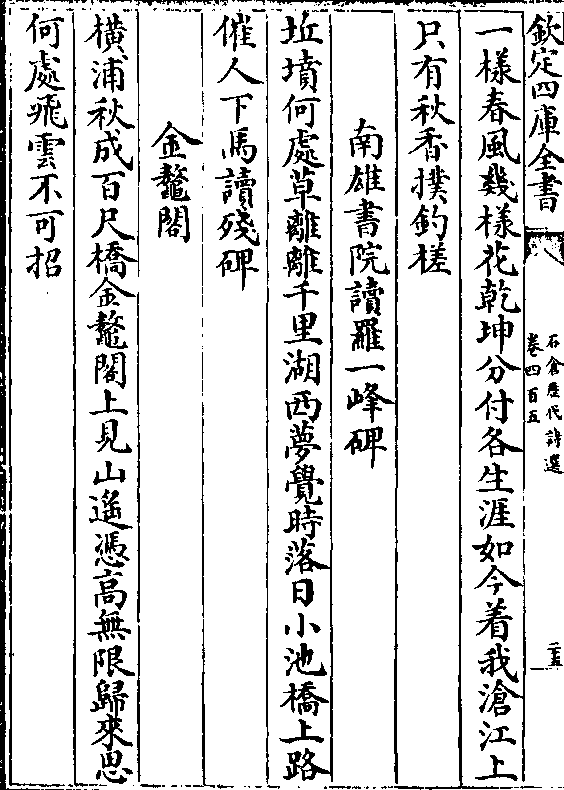 欽定四庫全書
石倉歷代詩選
卷四百五
二五
一樣春風幾樣花乾坤分付各生涯如今着我滄江上
只有秋香撲釣槎
南雄書院讀羅一峰碑
坵墳何處草離離千里湖西夢覺時落日小池橋上路
催人下馬讀殘碑
金鼇閣
橫浦秋成百尺橋金鼇閣上見山遙憑高無限歸來思
何處飛雲不可招